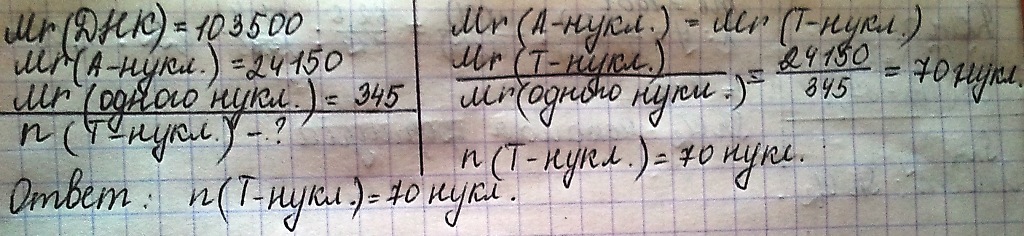 Mr(ДНК)=103500
Mr(А-нукл.)=24150
Mr(одного нукл.)=345
n(Т-нукл.)-?
Mr(А-нукл.)=Mr(Т-нукл.)
Mr(Т-нукл.)
Mr(одного нукл.)
= 24150
345
= 70 нукл.
n(Т-нукл.)=70 нукл.
Ответ: n(Т-нукл.)=70 нукл.